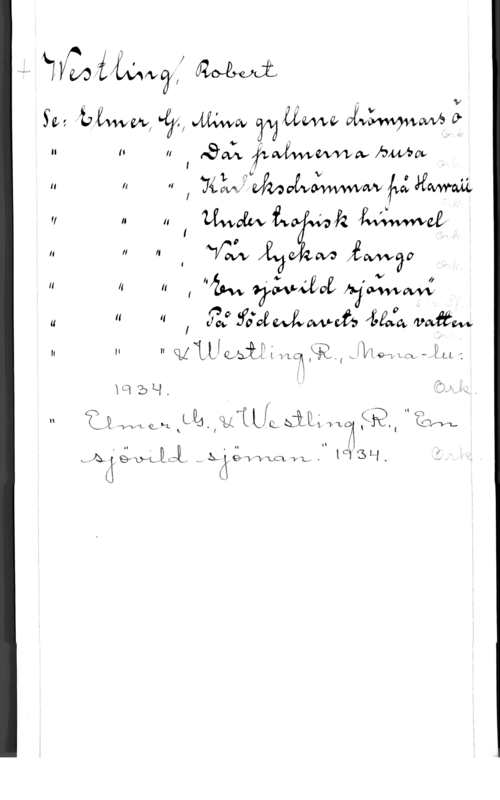 Westling, Robert
Se: Elmer, G., Mina gyllene drömmars ö
" " " , Där palmerna susa
" " " , Kärleksdrömmar på Hawaii
" " " , Under tropisk himmel
" " " , Vår lyckas tango
" " " , "En sjövild sjöman"
" " " , På Söderhavets blåa vatten
" " " & Westling, R., Mona-lu:
1934. Ork.
" Elmer, G., & Westling, R., "En
sjövild sjöman." 1934. Ork.